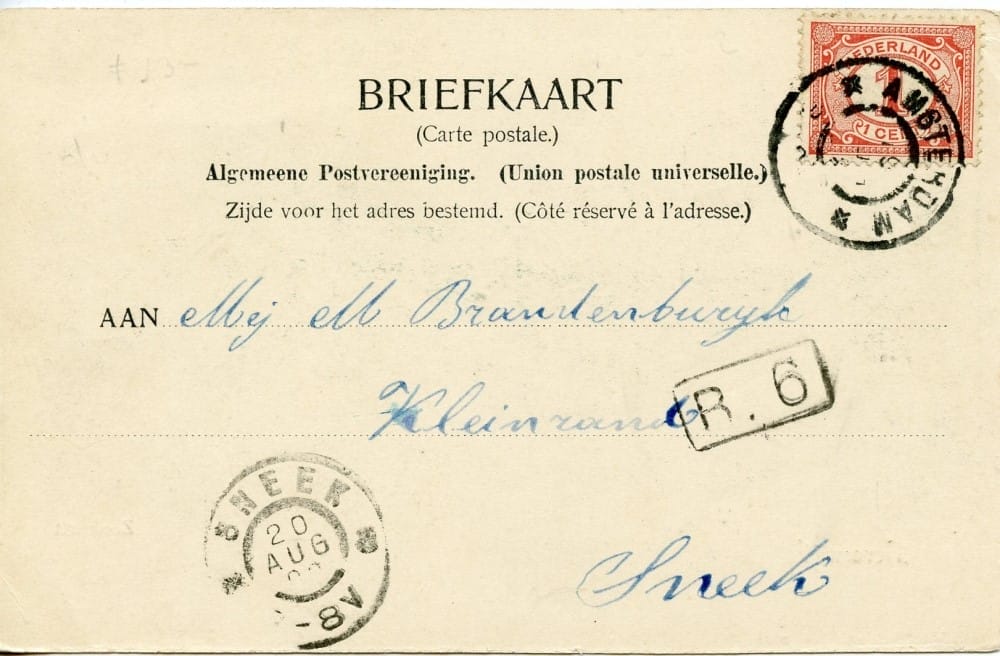 BRIEFKAART
(Carte postale.)
Algemeene Postvereeniging. (Union postale universelle.)
Zijde voor het adres bestemd. (Côté réservé à l'adresse.)
NEDERLAND
1
1 CENT
AMSTERDAM
AAN Mej M Brandenburgh
Kleinzand
R. 6
SNEEK
20
AUG
-8V
Sneek